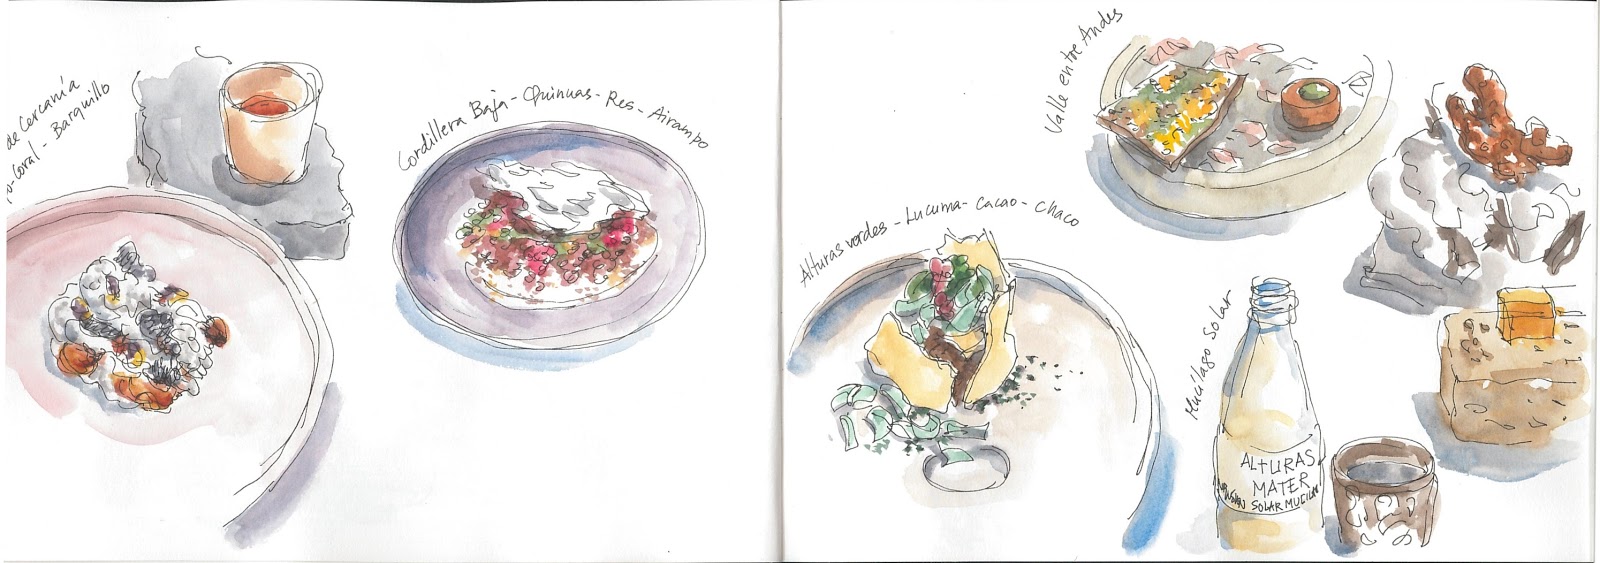 de Cercanía
-Coral - Barquillo
Cordillera Baja - Quinuas - Res - Airampo
Alturas verdes - Lucuma - Cacao - Chaco
Valle entre Andes
Mucílago Solar
ALTURAS
MATER
SOLAR MUCILAG